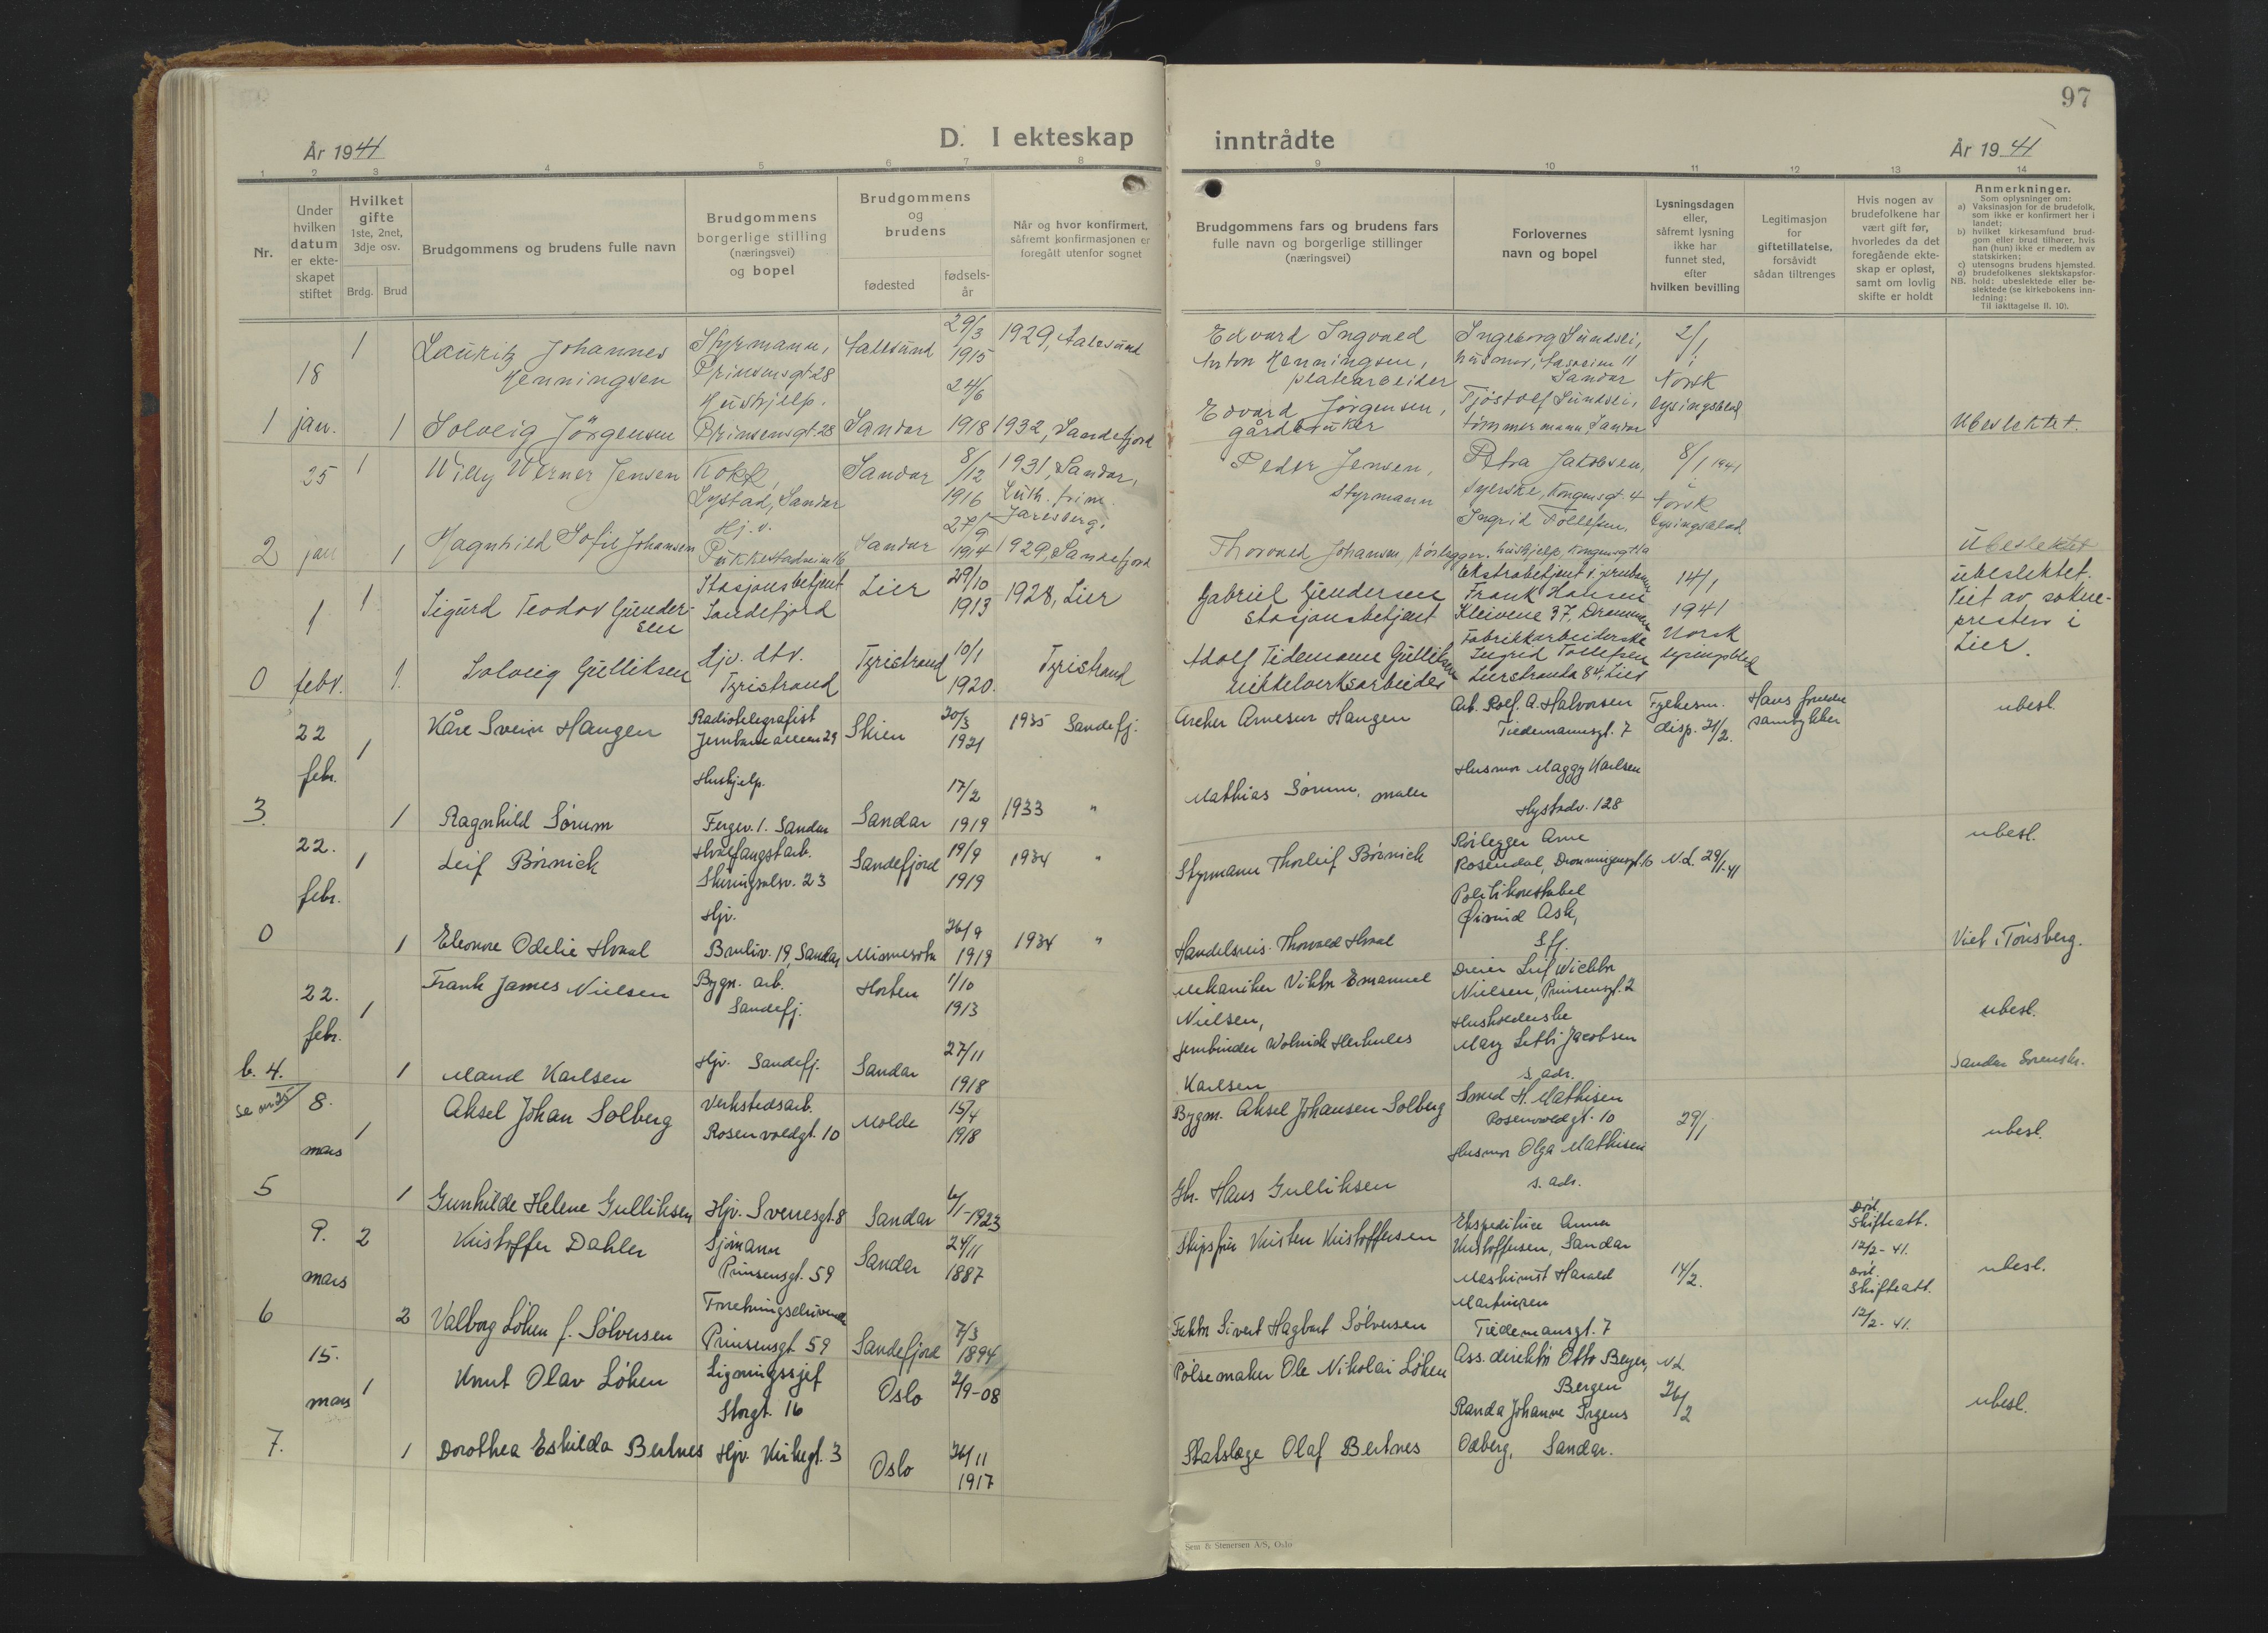 97
År 1941
D. I ekteskap inntrådte
År 1941
1 2 3 4 5 6 7 8 9 10 11 12 13 14
Nr.
Under hvilken datum er ekteskapet stiftet
Hvilket gifte 1ste, 2net, 3dje osv.
Brdg. Brud
Brudgommens og brudens fulle navn
Brudgommens borgerlige stilling (næringsvei) og bopel
Brudgommens og brudens
fødested
fødselsår
Når og hvor konfirmert, såfremt konfirmasjonen er foregått utenfor sognet
Brudgommens fars og brudens fars fulle navn og borgerlige stillinger (næringsvei)
Forlovernes navn og bopel
Lysningsdagen eller, såfremt lysning ikke har funnet sted, efter hvilken bevilling
Legitimasjon for giftetillatelse, forsåvidt sådan tiltrenges
Hvis nogen av brudefolkene har vært gift før, hvorledes da det foregående ekteskap er opløst, samt om lovlig skifte er holdt
Anmerkninger.
Som oplysninger om:
a) Vaksinasjon for de brudefolk, som ikke er konfirmert her i landet;
b) hvilket kirkesamfund brudgom eller brud tilhører, hvis han (hun) ikke er medlem av statskirken;
c) utensogns brudens hjemsted.
d) brudefolkenes slektskapsforhold: ubeslektede eller beslektede (se kirkebokens innledning:
NB.
Til iakttagelse II. 10).
1 18 jan.
1 Lauritz Johannes Henningsen
Styrmann, Prinsensgt 28
Aalesund 29/3 1915
1929, Aalesund
Edvard Ingvald Anton Henningsen, platearbeider
Ingeborg Sundsli, husmor, Sandar
2/1 Norsk lysingsblad
1 Solveig Jörgensen
Hushjelp. Prinsensgt. 28
Sandar 24/6 1918
1932, Sandefjord
Edvard Jørgensen, gårdbruker
Tjöstolf Sundsli, tömmermann, Sandar
Ubeslektet.
2 25 jan
1 Willy Werner Jensen
Kokk, Lystad, Sandar
Sandar 8/12 1916
1931, Sandar, Luth. frim. Jarlsberg.
Peder Jensen, Styrmann
Petra Jakobsen, syerske, Kongensgt. 4
8/1 1941 Norsk lysingsblad
1 Magnhild Sofie Johansen
Hj. v. Pukkestadveien 16
Sandar 27/9 1914
1929, Sandefjord
Thorvald Johansen, rörlegger.
Ingrid Tollefsen, hushjelp, Kongensgt
Ubeslektet
0 1 febr.
1 Sigurd Teodor Gundersen
Stasjonsbetjent Sandefjord
Lier 29/10 1913
1928, Lier
Gabriel Gundersen stasjonsbetjent
Ekstrabetjent v. jernbanen Frank Hansen Kleivene 37, Drammen
14/1 1941 Norsk lysingsblad
ubeslektet. Viet av soknepresten i Lier.
1. Solveig Gulliksen
Hjv. dtv. Tyristrand
Tyristrand 10/1 1920.
Tyristrand
Adolf Tidemann Gulliksen nikkelverksarbeider
Fabrikkarbeiderske Ingrid Tollefsen Lierstranda 84, Lier
3. 22 febr.
1 Kåre Svein Haugen
Radiotelegrafist Jernbanealleen 29
Skien 20/3 1921
1935 Sandefj.
Archer Arnesen Haugen
Arb. Rolf. A. Halvorsen Tiedemannsgt. 7
Fylkesm. disp. 21/2.
samtykker
ubesl.
1 Ragnhild Sörum
Hushjelp. Fergev. 1. Sandar
Sandar 17/2 1919
1933 "
Mathias Sörum, maler
Husmor Maggy Karlsen Hystadv. 128
0 22. febr.
1 Leif Börnick
Hvalfangstarb. Skiringsalsv. 23
Sandefjord 19/9 1919
1934 "
Styrmann Thorleif Börnick
Rörlegger Arne Rosendal, Dronningensgt. 10
N.L. 29/1-41
ubesl.
1 Eleonore Odelie Hvaal
Hjv. Bruliv. 19, Sandar
Minnesota 26/9 1919
1934 "
Handelsreis. Thorvald Hvaal
Politikonstabel Øivind Ask, Sfj.
Viet i Tönsberg.
b. 4. se nr 25
22. febr.
1 Frank James Nielsen
Bygn. arb. Sandefj.
Horten 1/10 1913
Mekaniker Viktor Emanuel Nielsen,
Dreier Leif Wiktor Nielsen, Prinsensgt. 2
ubesl.
1 Maud Karlsen
Hjv. Sandefj.
Sandar 27/11 1918
Jernbinder Wolmick Herkules Karlsen
Husholderske Mary Letti Jacobsen s. adr.
Sandar Sorenskr.
5 8. mars
1 Aksel Johan Solberg
Verkstedsarb. Rosenvoldgt. 10
Molde 15/4 1918
Bygm. Aksel Johansen Solberg
Smed H. Mathisen Rosenvoldgt. 10
29/1
ubesl.
1 Gunhilde Helene Gulliksen
Hjv. Sverresgt. 8
Sandar 6/1-1923
Gbr. Hans Gulliksen
Husmor Olga Mathisen s. adr.
6 9. mars
2 Kristoffer Dahler
Sjömann Prinsensgt. 59
Sandar 24/11 1887
Skipsfører Kristen Kristoffersen
Ekspeditrice Anna Kristoffersen, Sandar
14/2.
Död. Skifteatt. 12/2-41.
ubesl.
2 Valborg Löken f. Sölversen
Forretningsdrivende Prinsensgt. 59
Sandefjord 7/3 1894
Faktor Sivert Hagbart Sölversen
Maskinist Harald Martinsen Tiedemansgt. 7
Död. Skifteatt. 12/2-41.
7. 15. mars
1 Knut Olav Löken
Ligningssjef Storgt. 16
Oslo 2/9-08
Pölsemaker Ole Nikolai Löken
Ass. direktör Otto Beyer, Bergen
N.L. 26/2
ubesl.
1 Dorothea Eskilda Bertnes
Hjv. Kirkegt. 3
Oslo 26/11 1917
Statslege Olaf Bertnes
Randa Johanne Irgens Odberg, Sandar.
Sem & Stenersen A/S, Oslo